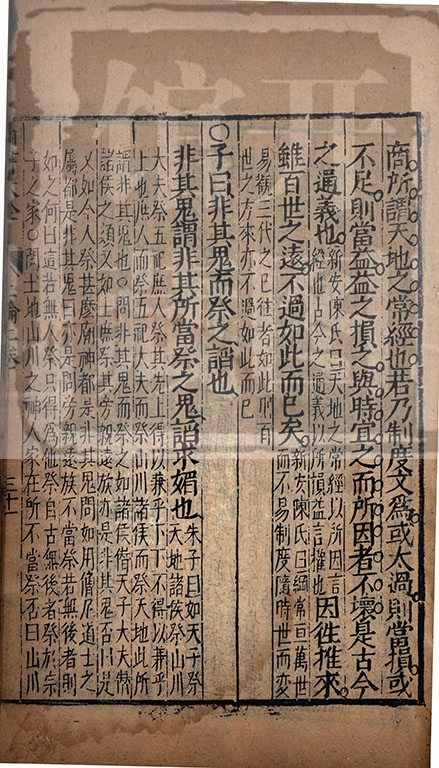 商所謂天地之常經也若乃制度文爲或太過則當損或
不足則當益益之損之與時宜之而所因者不壞是古今
之通義也新安陳氏曰天地之常經以所因言經也古今之通義以所損益言權也因往推來
雖百世之遠不過如此而已矣新安陳氏曰綱常亘萬世而不易制度隨時世而變
易觀三代之已往者如此則百
世之方來亦不過如此而已
○子曰非其鬼而祭之諂也
非其鬼謂非其所當祭之鬼諂求媚也朱子曰如天子祭天地諸侯祭山川
大夫祭五祀庶人祭其先上得以兼乎下下不得以兼乎
上也庶人而祭五祀大夫而祭山川諸侯而祭天地此所
謂非其鬼也○問非其鬼而祭之如諸侯僭天子大夫僭
諸侯之類又如士庶祭其旁親遠族亦是非其鬼否曰是
又如今人祭甚麼廟神都是非其鬼問如用僧尼道士之
屬都是非其鬼曰亦是問旁親遠族不當祭若無後者則
如之何曰這若無人祭只得爲他祭自古無後者祭於宗
子之家○問土地山川之神人家在所不當祭否曰山川